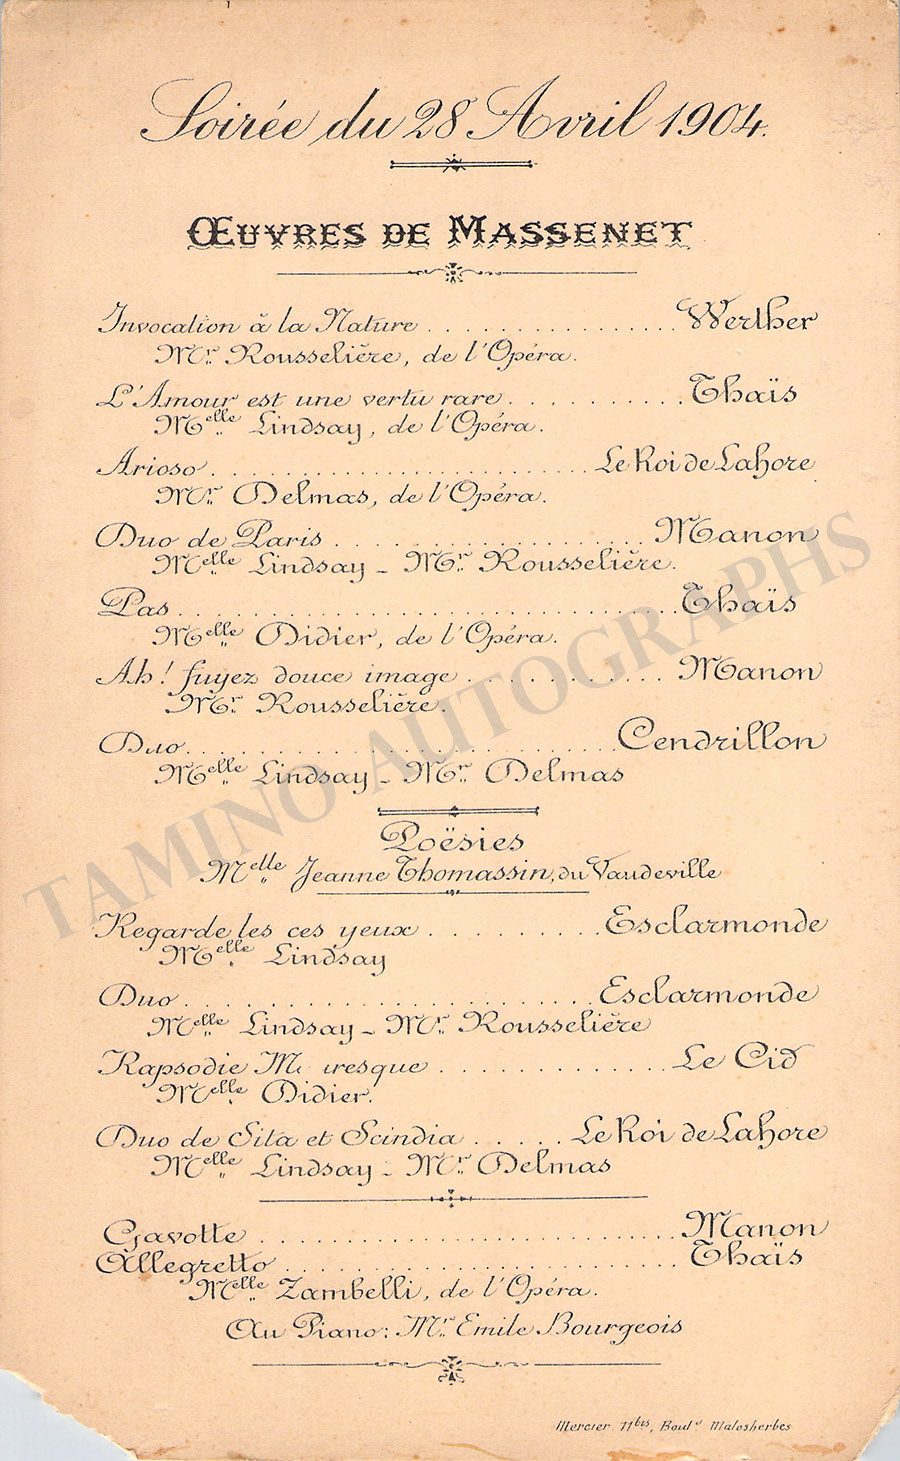 Soirée du 28 Avril 1904.
ŒUVRES DE MASSENET
Invocation à la Nature . . . . . . . . . . . . . Werther
Mr. Rousselière, de l'Opéra.
L'Amour est une vertu rare . . . . . . . . . . Thaïs
Melle Lindsay, de l'Opéra.
Arioso . . . . . . . . . . . . . . . . . . . . Le Roi de Lahore
Mr. Delmas, de l'Opéra.
Duo de Paris . . . . . . . . . . . . . . . . Manon
Melle Lindsay - Mr. Rousselière.
Pas . . . . . . . . . . . . . . . . . . . . . . Thaïs
Melle Didier, de l'Opéra.
Ah! fuyez douce image . . . . . . . . . . Manon
Mr. Rousselière.
Duo . . . . . . . . . . . . . . . . . . . . . Cendrillon
Melle Lindsay - Mr. Delmas
Poësies
Melle Jeanne Thomassin, du Vaudeville
Regarde les ces yeux . . . . . . . . . Esclarmonde
Melle Lindsay
Duo . . . . . . . . . . . . . . . . . . . . Esclarmonde
Melle Lindsay - Mr. Rousselière
Rapsodie M resque . . . . . . . . . . . . . Le Cid
Melle Didier.
Duo de Sita et Scindia . . . . . Le Roi de Lahore
Melle Lindsay - Mr. Delmas
Gavotte . . . . . . . . . . . . . . . . . . . . Manon
Allegretto . . . . . . . . . . . . . . . . . . . Thaïs
Melle Zambelli, de l'Opéra.
Au Piano: Mr. Emile Bourgeois
Mercier 11bis, Boul.d Malesherbes
TAMINO AUTOGRAPHS